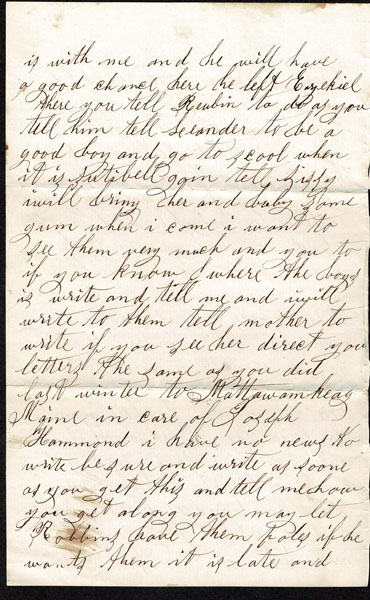 is with me and he will have
a good chance here he left Ezekiel
there you tell Reubin to do as you
tell him tell Leeander to be a
good boy and go to scool when
it is sutibell again tell Sissy
i will bring her and baby some
gum when i come i want to
see them very much and you to
if you know where the boys
is write and tell me and i will
write to them tell mother to
write if you see her direct you
letters the same as you did
last winter to Mattawamkeag
Maine in care of Joseph
Hammond i have no news to
write be sure and write as soone
as you get this and tell me how
you get along you may let
Robbins have them poles if he
wants them it is late and